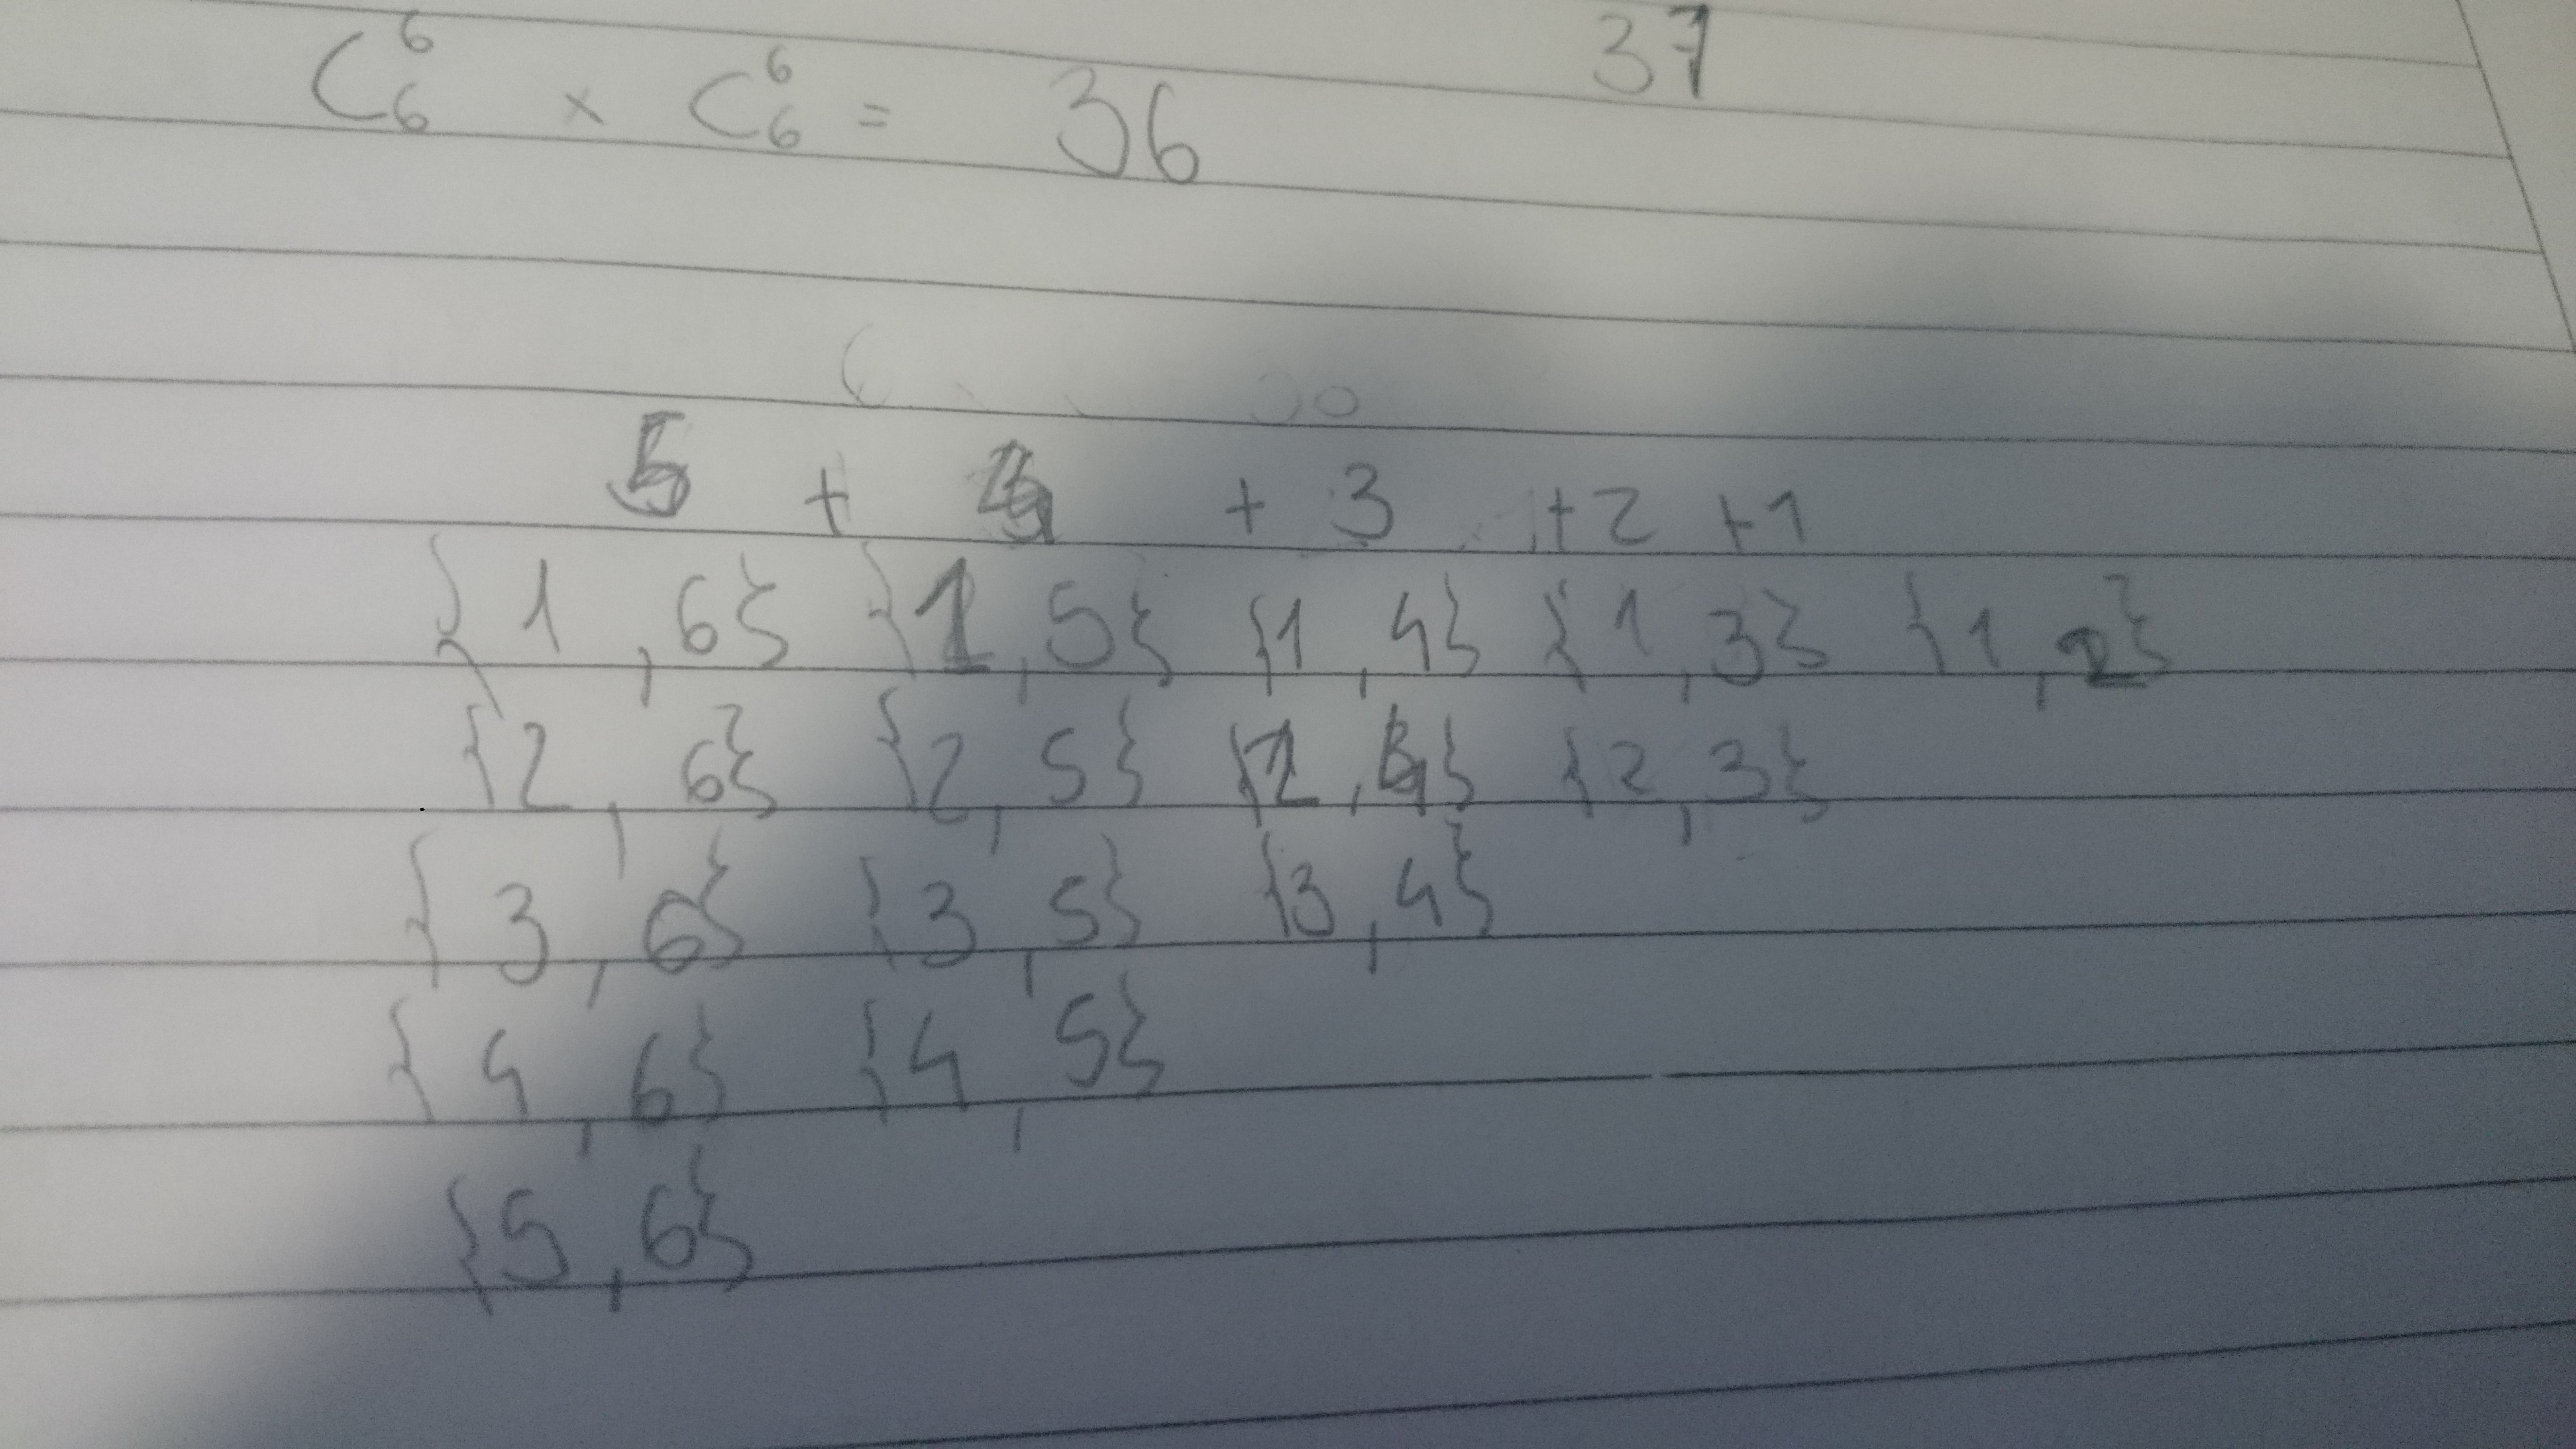 37
C₆⁶ × C₆⁶ = 36
5 + 4 + 3 + 2 + 1
{1,6} {1,5} {1,4} {1,3} {1,2}
{2,6} {2,5} {2,4} {2,3}
{3,6} {3,5} {3,4}
{4,6} {4,5}
{5,6}